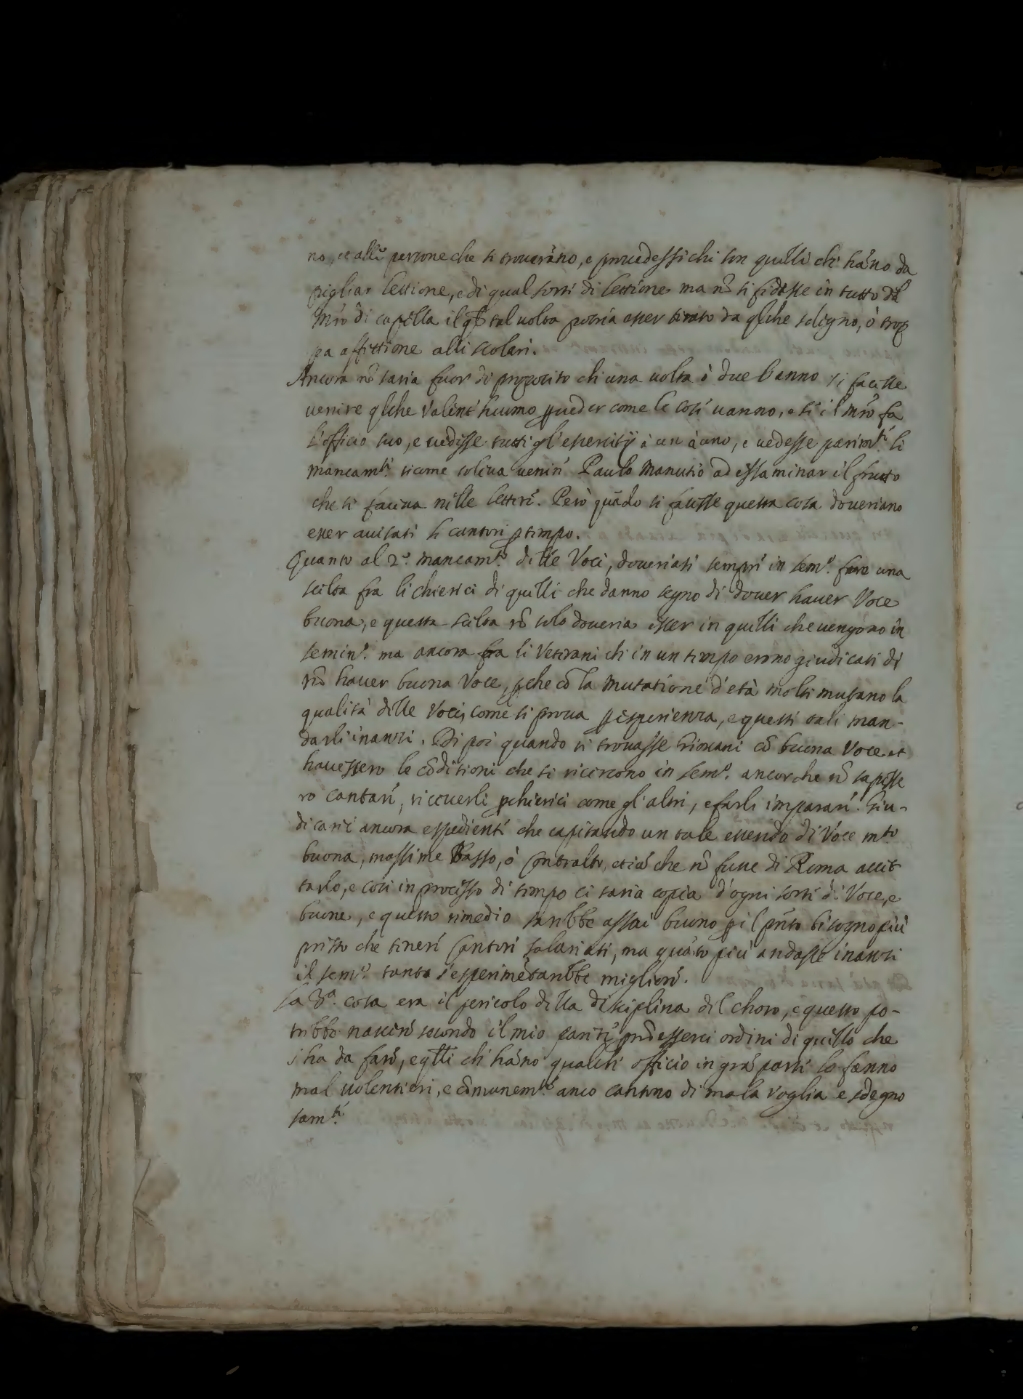 no, et altre persone che si troverāno, e provedessichi son quelli chi hāno da
pigliar lettione, e di qual sorti di lettione ma nō si fidasse in tutto del
Mrō di capella il q̄l tal volta potria esser tirato da q̄lche sdegno, ò trop
pa affettione alli scolari.
Ancora nō saria fuor di proposito chi una volta ò due l'anno si facesse
venire q̄lche valent'huomo p veder come le cose vanno, e si il Mrō fa
l'officio suo, e vedesse tutti gl'essercitij i un anno, e vedesse parimti. li
mancamti. sicome soliva venire Paulo Manutio ad essaminar il frutto
che si faceva nelle lettere. Però quādo si facesse questa cosa doveriano
esser avisati li cantori p tempo.
Quanto al 2.º mancamto. delle Voci, doveriasi sempre in semo. fare una
scelta fra li chierici di quelli che danno segno di dover haver Voce
buona, e questa scelta nō solo doveria esser in quelli che vengono in
semino. ma ancora fra li Veterani chi in un tempo erano giudicati di
nō haver buona Voce, pche cō la mutatione d'età molti mutano la
qualità delle Voci, come si prova p esperienza, e questi tali man-
darli inanzi. Di poi quando si trovasse Giovani cō buona Voce et
havessero le cōditioni che si ricercono in semo. ancorche nō sapesse
ro cantare, riceverli p chierici come gl'altri, e farli imparare. Giu-
dicarei ancora espediente che capitando un tale essendo di Voce mto
buona, massime Basso, ò Contralto, eciā che nō fusse di Roma accet
tarlo, e così in processo di tempo ci saria copia d'ogni sorti di Voce, e
buone, e questo rimedio sarebbe assai buono p il pn̄te bisogno più
presto che tinere Cantori salariati, ma quāto più andasse inanzi
il semo. tanto s'esperimētarebbe migliore.
La 3a. cosa era il pericolo della disciplina del choro, e questo po-
trebbe nascere secondo il mio parere p nō esserci ordini di quello che
s'ha da fare, e q̄lli chi hāno qualche officio in grā parte lo fanno
mal volentieri, e cōmunemte. anco cantano di mala voglia e sdegno
samte.